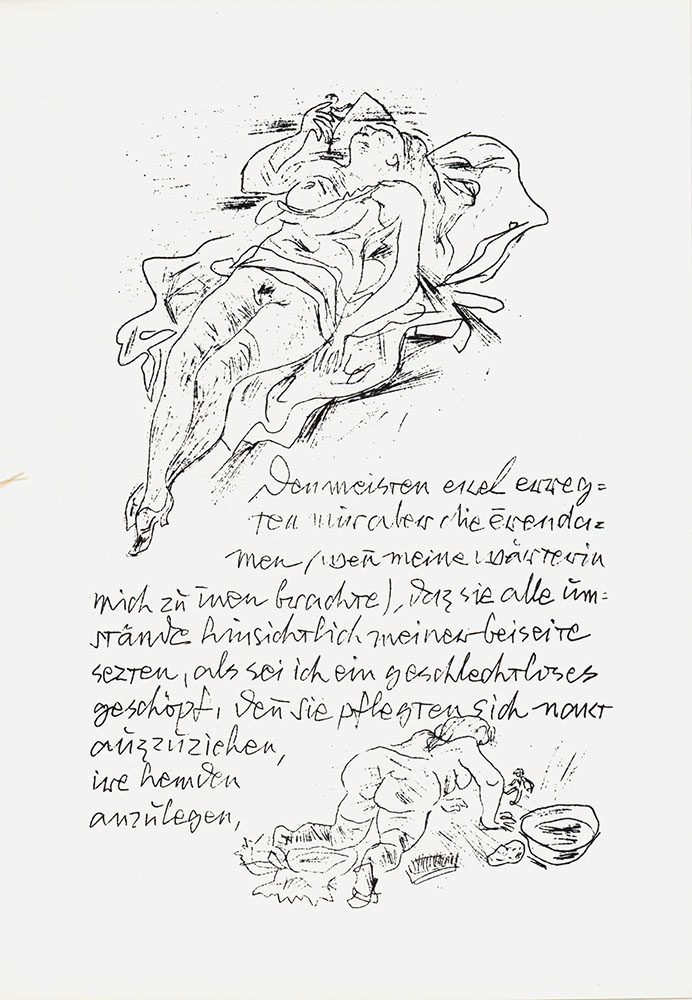 Den meisten ekel erreg=
ten mir aber die ērenda=
men (weñ meine wärterin
mich zū īnen brachte), daz sie alle ūm=
stände hinsichtlich meiner beiseite
sezten, als sei ich ein geschlechtloses
geschöpf, deñ sie pflegten sich nakt
aūzzūziehen,
ire hemden
anzūlegen,